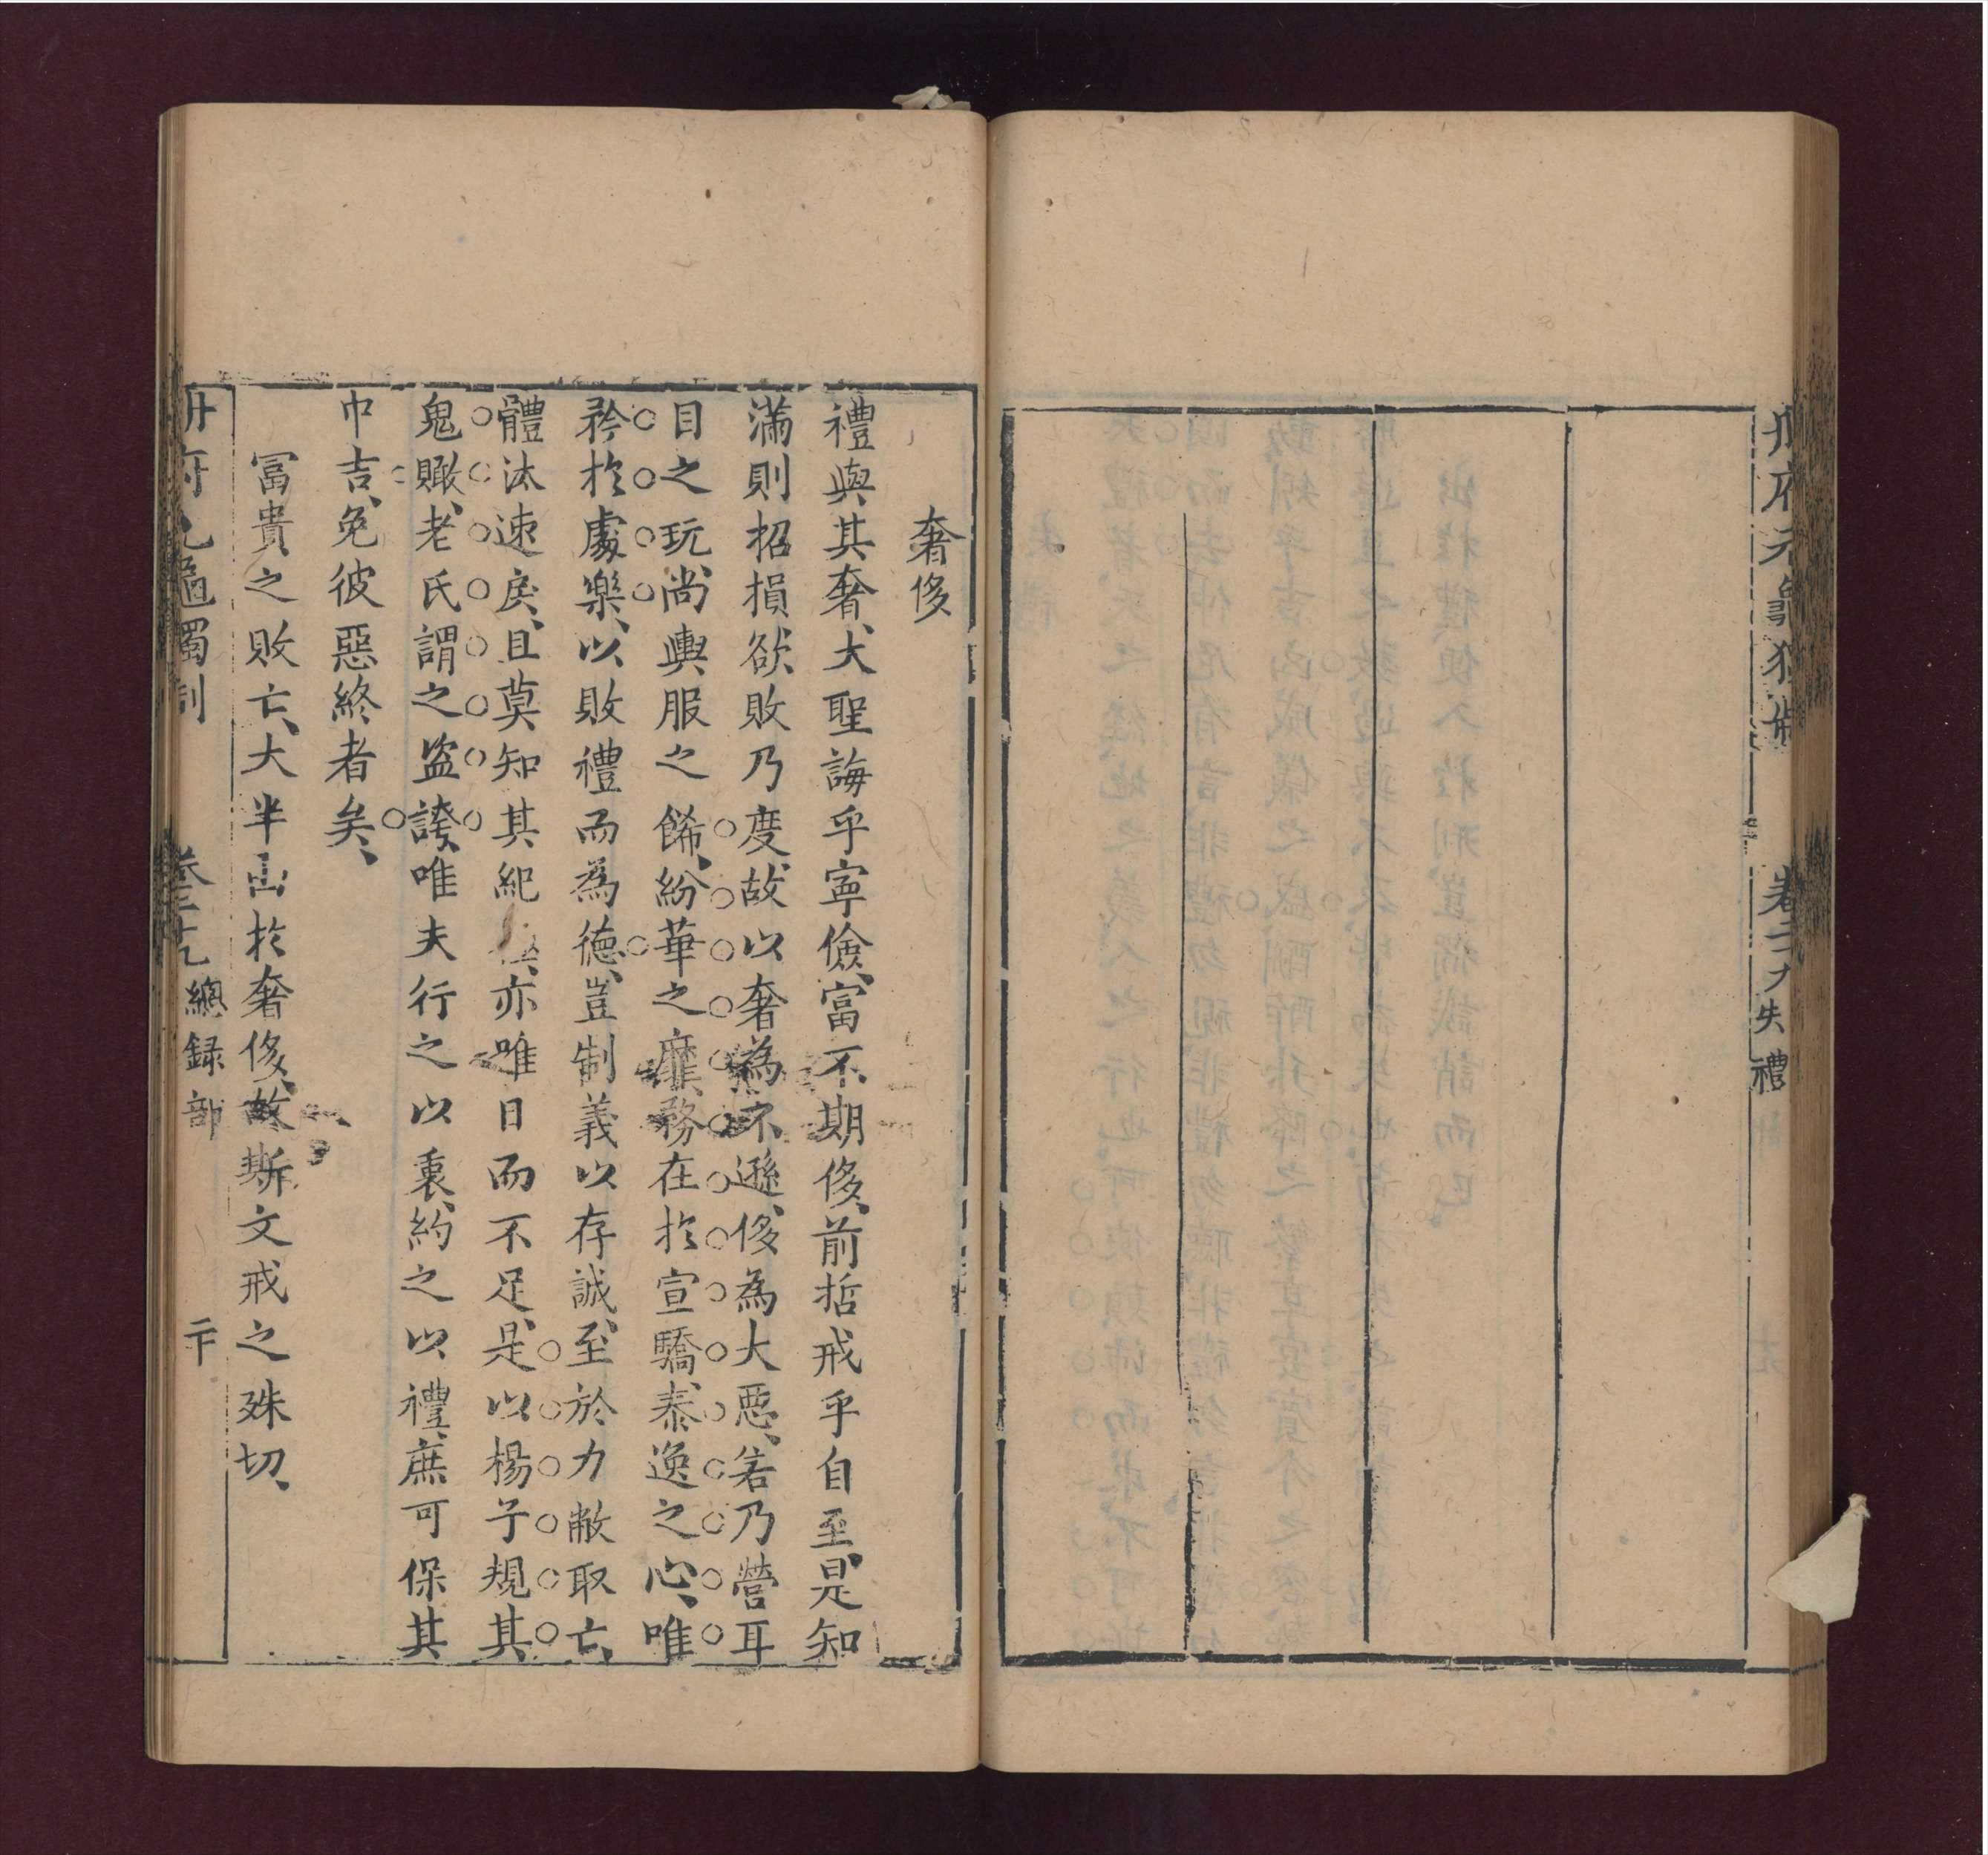 冊府元龜獨制
卷二十九失禮
奢侈
禮與其奢、大聖誨乎寧儉、富不期侈、前哲戒乎自至、是知
滿則招損、欲敗乃度、故以奢為不遜、侈為大惡、若乃營耳
目之玩、尚輿服之餙、紛華之靡、務在於宣驕、泰逸之心、唯
矜於處樂、以敗禮而為德、豈制義以存誠、至於力敝取亡、
體汰速戾、且莫知其紀、亦唯日而不足、是以楊子規其
鬼瞰、老氏謂之盜誇、唯夫行之以衷、約之以禮、庶可保其
巾吉、免彼惡終者矣、
冨貴之敗亡、大半出於奢侈、故斯文戒之殊切、
冊府元龜獨制
卷二十九總録部
二十